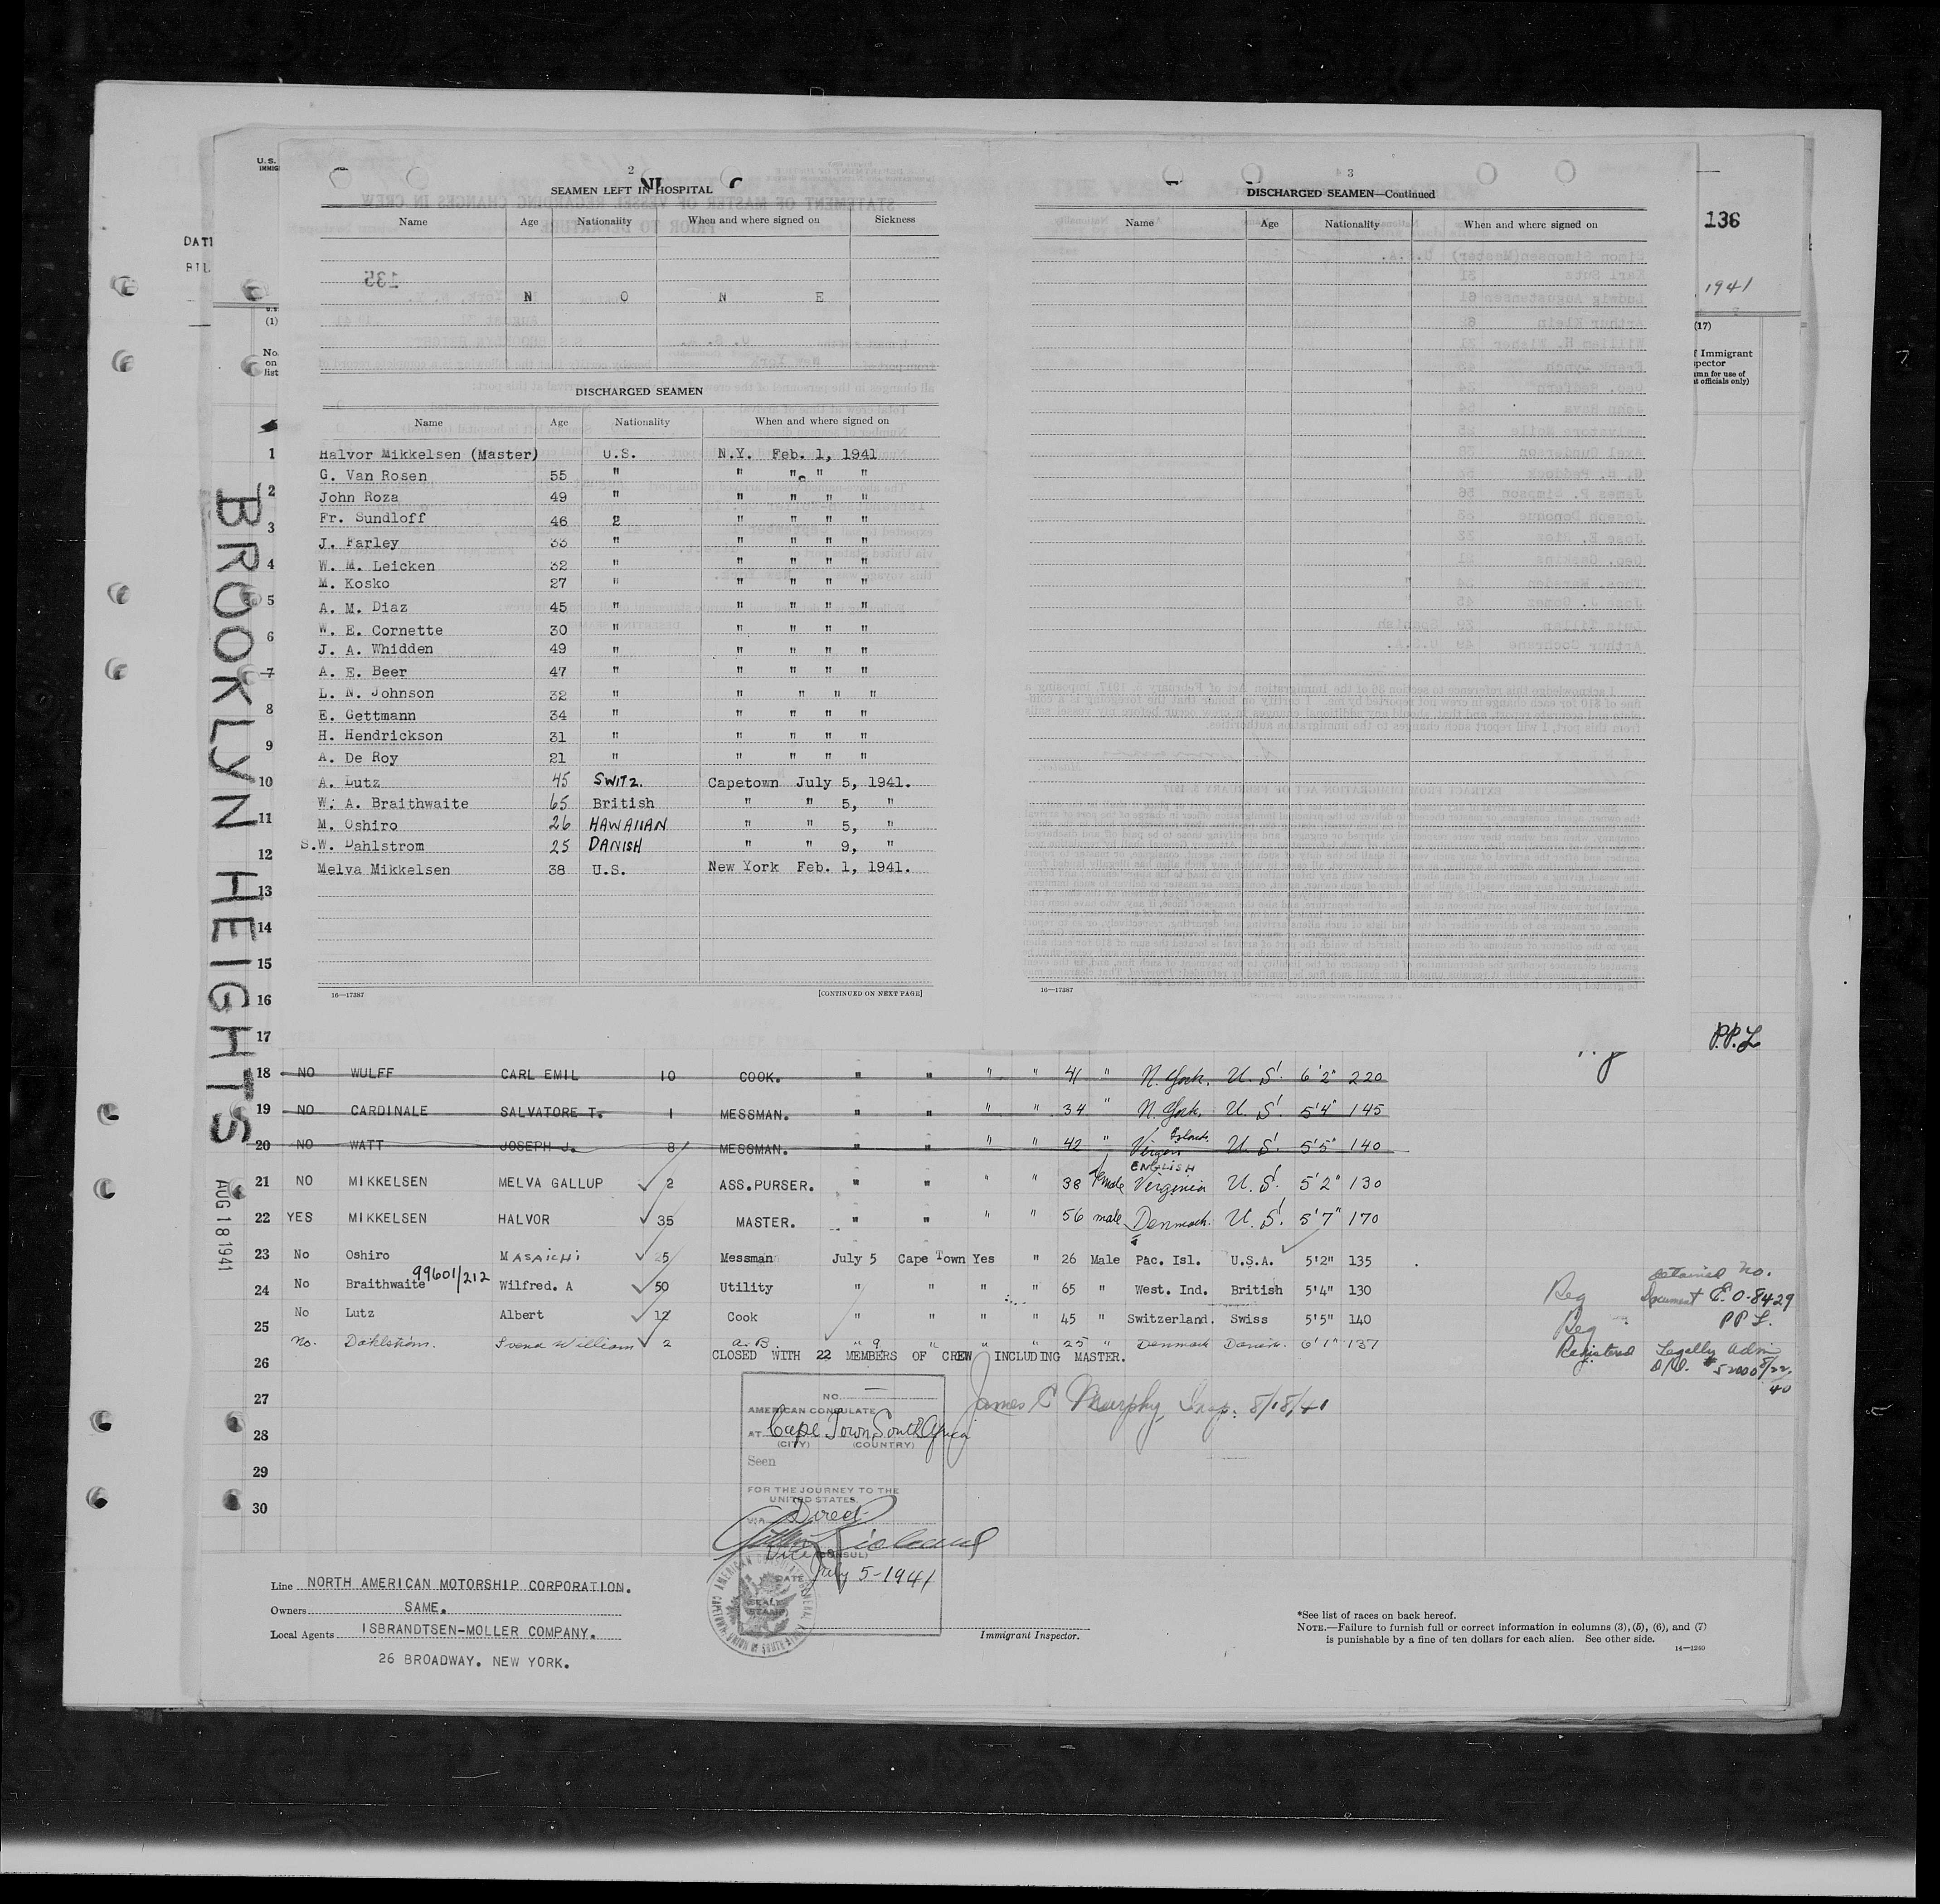 2
SEAMEN LEFT IN HOSPITAL
Name Age Nationality When and where signed on Sickness
N O N E
DISCHARGED SEAMEN
Name Age Nationality When and where signed on
Halvor Mikkelsen (Master) U.S. N.Y. Feb. 1, 1941
G. Van Rosen 55 " " " " "
John Roza 49 " " " " "
Fr. Sundloff 46 " " " " "
J. Farley 33 " " " " "
W. M. Leicken 32 " " " " "
M. Kosko 27 " " " " "
A. M. Diaz 45 " " " " "
W. E. Cornette 30 " " " " "
J. A. Whidden 49 " " " " "
A. E. Beer 47 " " " " "
L. N. Johnson 32 " " " " "
E. Gettmann 34 " " " " "
H. Hendrickson 31 " " " " "
A. De Roy 21 " " " " "
A. Lutz 45 SWITZ. Capetown July 5, 1941.
W. A. Braithwaite 65 British " " 5, "
M. Oshiro 26 HAWAIIAN " " 5, "
S.W. Dahlstrom 25 DANISH " " 9, "
Melva Mikkelsen 38 U.S. New York Feb. 1, 1941.
16—17387 [CONTINUED ON NEXT PAGE]
3
DISCHARGED SEAMEN—Continued
Name Age Nationality When and where signed on
16—17387
136
1941
(17)
f Immigrant
pector
mn for use of
t officials only)
U.S.
IMMIG
DATE
(1)
No.
on
list
1
2
3
4
5
6
7
8
9
10
11
12
13
14
15
16
17
P.P.L
BROOKLYN HEIGHTS
AUG 18 1941
18 NO WULFF CARL EMIL 10 COOK. " " " " 41 " N. York. U. S. 6'2" 220
19 NO CARDINALE SALVATORE T. 1 MESSMAN. " " " " 34 " N. York. U. S. 5'4" 145
20 NO WATT JOSEPH J. 8 MESSMAN. " " " " 42 " Virgin Islands U. S. 5'5" 140
21 NO MIKKELSEN MELVA GALLUP 2 ASS.PURSER. " " " " 38 Female ENGLISH Virginia U. S. 5'2" 130
22 YES MIKKELSEN HALVOR 35 MASTER. " " " " 56 male Denmark. U. S. 5'7" 170
23 No Oshiro MASAICHI 25 Messman July 5 Cape Town Yes " 26 Male Pac. Isl. U.S.A. 5'2" 135
24 No Braithwaite 99601/212 Wilfred. A 50 Utility " " " " 65 " West. Ind. British 5'4" 130 Reg Detained No. Document E.O-8429
25 No Lutz Albert 12 Cook " " " " 45 " Switzerland. Swiss 5'5" 140 Reg P P L.
26 No. Dahlstrom. Svend William 2 A.B. " 9 " " " 25 " Denmark Danish. 6'1" 137 Registered Legally Adm
CLOSED WITH 22 MEMBERS OF CREW INCLUDING MASTER.
27
28
29
30
James C Murphy, Insp. 8/18/41
NO. —
AMERICAN CONSULATE
AT Cape Town, South Africa
(CITY) (COUNTRY)
Seen
FOR THE JOURNEY TO THE
UNITED STATES
VIA Direct
Vice (CONSUL)
DATE July 5-1941
Line NORTH AMERICAN MOTORSHIP CORPORATION.
Owners SAME.
Local Agents ISBRANDTSEN-MOLLER COMPANY.
26 BROADWAY. NEW YORK.
Immigrant Inspector.
*See list of races on back hereof.
NOTE.—Failure to furnish full or correct information in columns (3), (5), (6), and (7)
is punishable by a fine of ten dollars for each alien. See other side.
14—1240